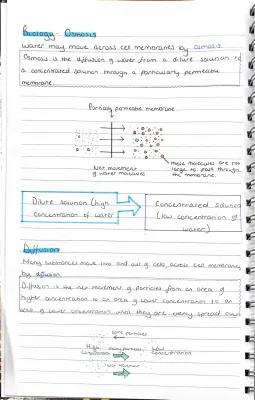 Biology - Osmosis
Water may move across cell membranes by osmosis.
Osmosis is the diffusion of water from a dilute solution to
a concentrated solution through a partially permeable
membrane.
Partially permeable membrane
Net movement
of water molecules
these molecules are too
large to pass through
the membrane.
Dilute solution (high
concentration of water
Concentrated solution
(low concentration of
water)
Diffusion
Many substances move into and out of cells, across cell membranes
by diffusion
Diffusion is the net movement of particles from an area of
higher concentration to an area of lower concentration to an
area of lower concentration until they are evenly spread out
particles
High
Low
concentration